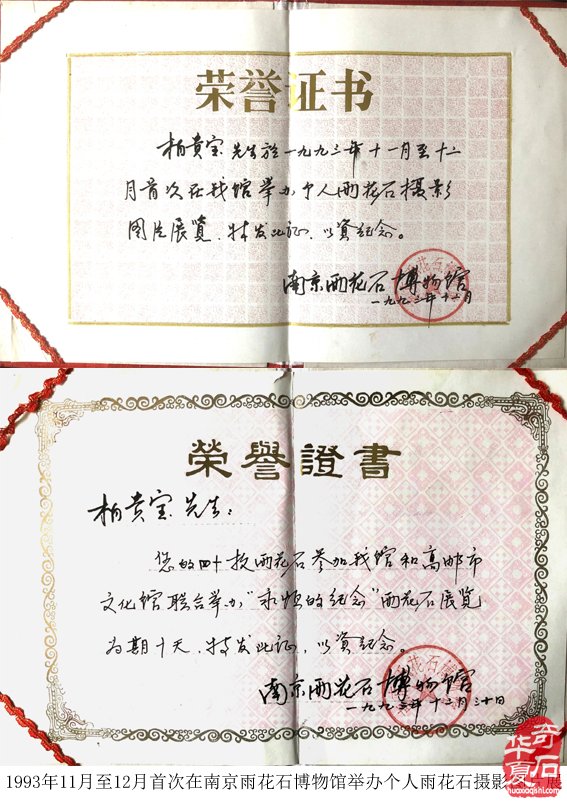 荣誉证书
柏贵宝先生於一九九三年十一月至十二
月首次在我馆举办个人雨花石摄影
图片展览、特发此证、以资纪念。
南京雨花石博物馆
一九九三年十一月
榮譽證書
柏贵宝先生：
您的四十枚雨花石参加我馆和高邮市
文化馆联合举办“永恒的纪念”雨花石展览
为期十天、特发此证、以资纪念。
南京雨花石博物馆
一九九三年十二月三十日
奇石
华夏
huaxiaqishi.com
1993年11月至12月首次在南京雨花石博物馆举办个人雨花石摄影
展